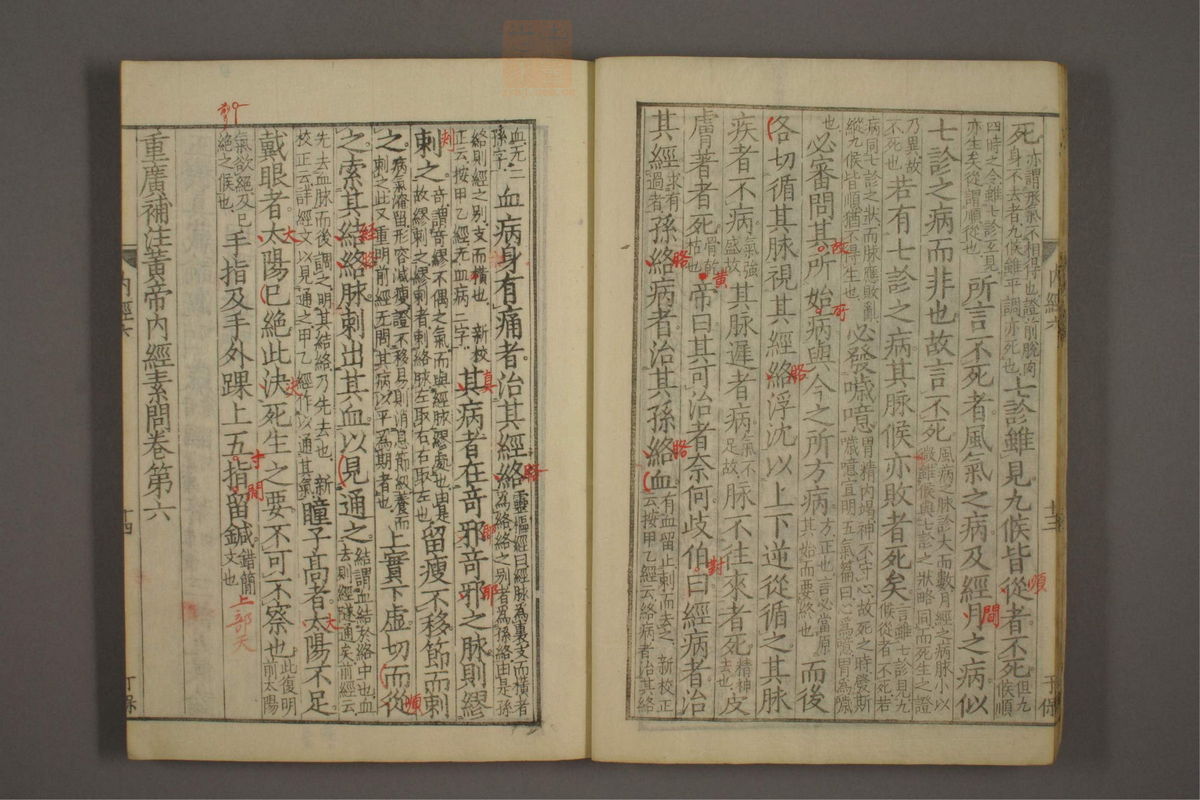 死亦謂形氣不相得也證前脫肉身不去者九候雖平調亦死也七診雖見九候皆從者不死但九候順
四時之令雖七診互見亦生矣從謂順從也所言不死者風氣之病及經月之病似
七診之病而非也故言不死風病之脈診大而數月經之病脈小以微雖候與七診之狀略同而死生之證
乃異故不死也若有七診之病其脈候亦敗者死矣言雖七診見九候從者不死若
病同七診之狀而脈應敗亂縱九候皆順猶不得生也必發噦噫胃精內竭神不守心故死之時發斯噦噫宣明五氣篇曰心爲噫胃爲噦
也必審問其所始病與今之所方病方正也言必當原其始而要終也而後
各切循其脈視其經絡浮沈以上下逆從循之其脈
疾者不病氣強盛故其脈遲者病氣不足故脈不往來者死精神去也皮
膚著者死骨乾枯也帝曰其可治者奈何歧伯曰經病者治
其經求有過者孫絡病者治其孫絡血有血留止刺而去之 新校正云按甲乙經云絡病者治其絡
内經六
十三
血无二孫字血病身有痛者治其經絡靈樞經曰經脈為裏支而橫者爲絡絡之別者爲孫絡由是孫
絡則經之別支而橫也 新校正云按甲乙經无血病二字其病者在奇邪奇邪之脈則繆
刺之奇謂奇繆不偶之氣而與經脈繆處也由是故繆刺之繆刺者刺絡脈左取右右取左也留瘦不移節而刺
之病氣淹留形容減瘦證不移易則消息節級養而刺之此又重明前經无問其病以平為期者也上實下虛切而從
之索其結絡脈刺出其血以見通之結謂血結於絡中也血去則經隧通矣前經云
先去血脈而後調之明其結絡乃先去也 新校正云詳經文以見通之甲乙經作以通其氣瞳子高者太陽不足
戴眼者太陽已絕此決死生之要不可不察也此復明前太陽
氣欲絕及已絕之候也手指及手外踝上五指留鍼錯簡文也 上部天
重廣補注黃帝內經素問卷第六
内經六
十四